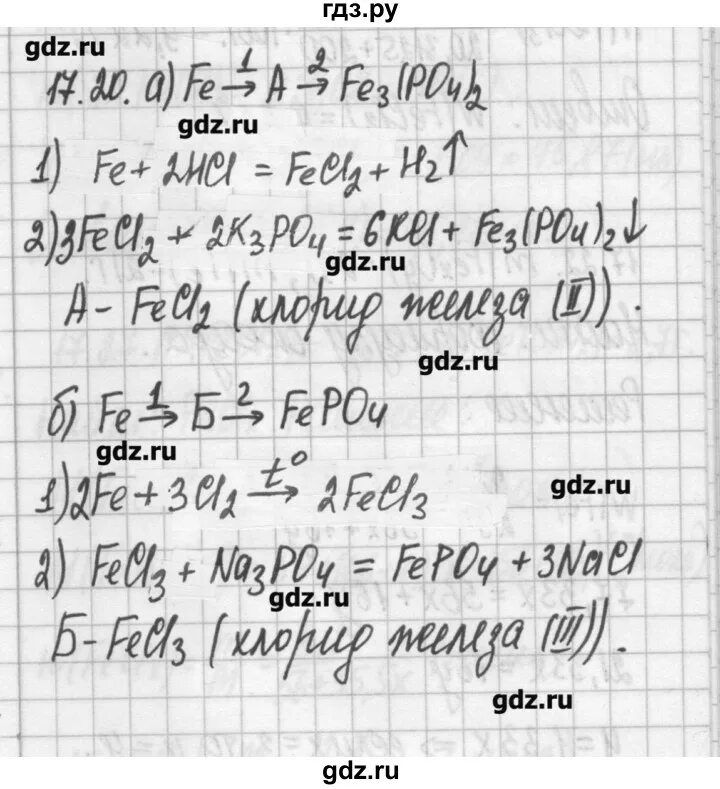 гдз.ру
gdz.ru
17.20. а) Fe →1 А →2 Fe3(PO4)2
gdz.ru
1) Fe + 2HCl = FeCl2 + H2↑
2) 3FeCl2 + 2K3PO4 = 6KCl + Fe3(PO4)2↓
gdz.ru
А - FeCl2 (хлорид железа (II)).
gdz.ru
б) Fe →1 Б →2 FePO4
gdz.ru
1) 2Fe + 3Cl2 →t° 2FeCl3
gdz.ru
2) FeCl3 + Na3PO4 = FePO4 + 3NaCl
gdz.ru
Б - FeCl3 (хлорид железа (III)).
gdz.ru
gdz.ru